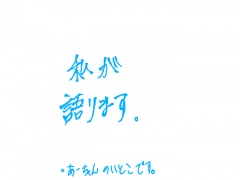 私が
語ります。
。あーちゃんのいとこです。